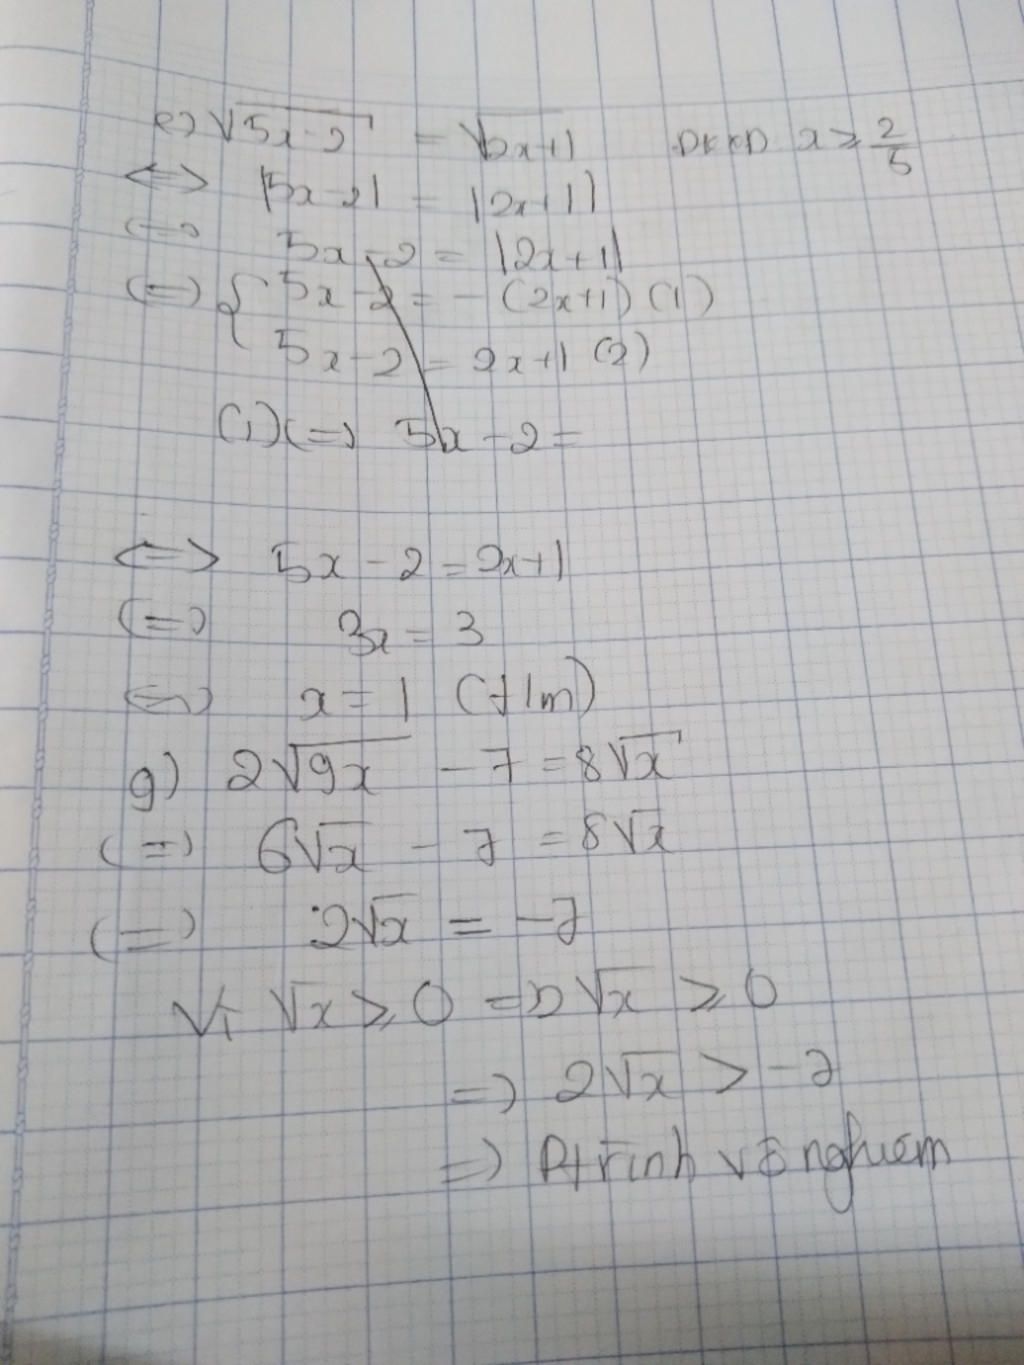 e) √(5x-2) = √(2x+1) DKXD x ≥ 2/5
<=> |5x-2| = |2x+1|
<=> 5x-2 = |2x+1|
<=> { 5x-2 = -(2x+1) (1)
5x-2 = 2x+1 (2)
(1) <=> 5x-2 =
<=> 5x-2 = 2x+1
<=> 3x = 3
<=> x = 1 (t/m)
g) 2√9x - 7 = 8√x
<=> 6√x - 7 = 8√x
<=> 2√x = -7
Vì √x ≥ 0 => 2√x ≥ 0
=> 2√x > -7
=> Ptrình vô nghiệm